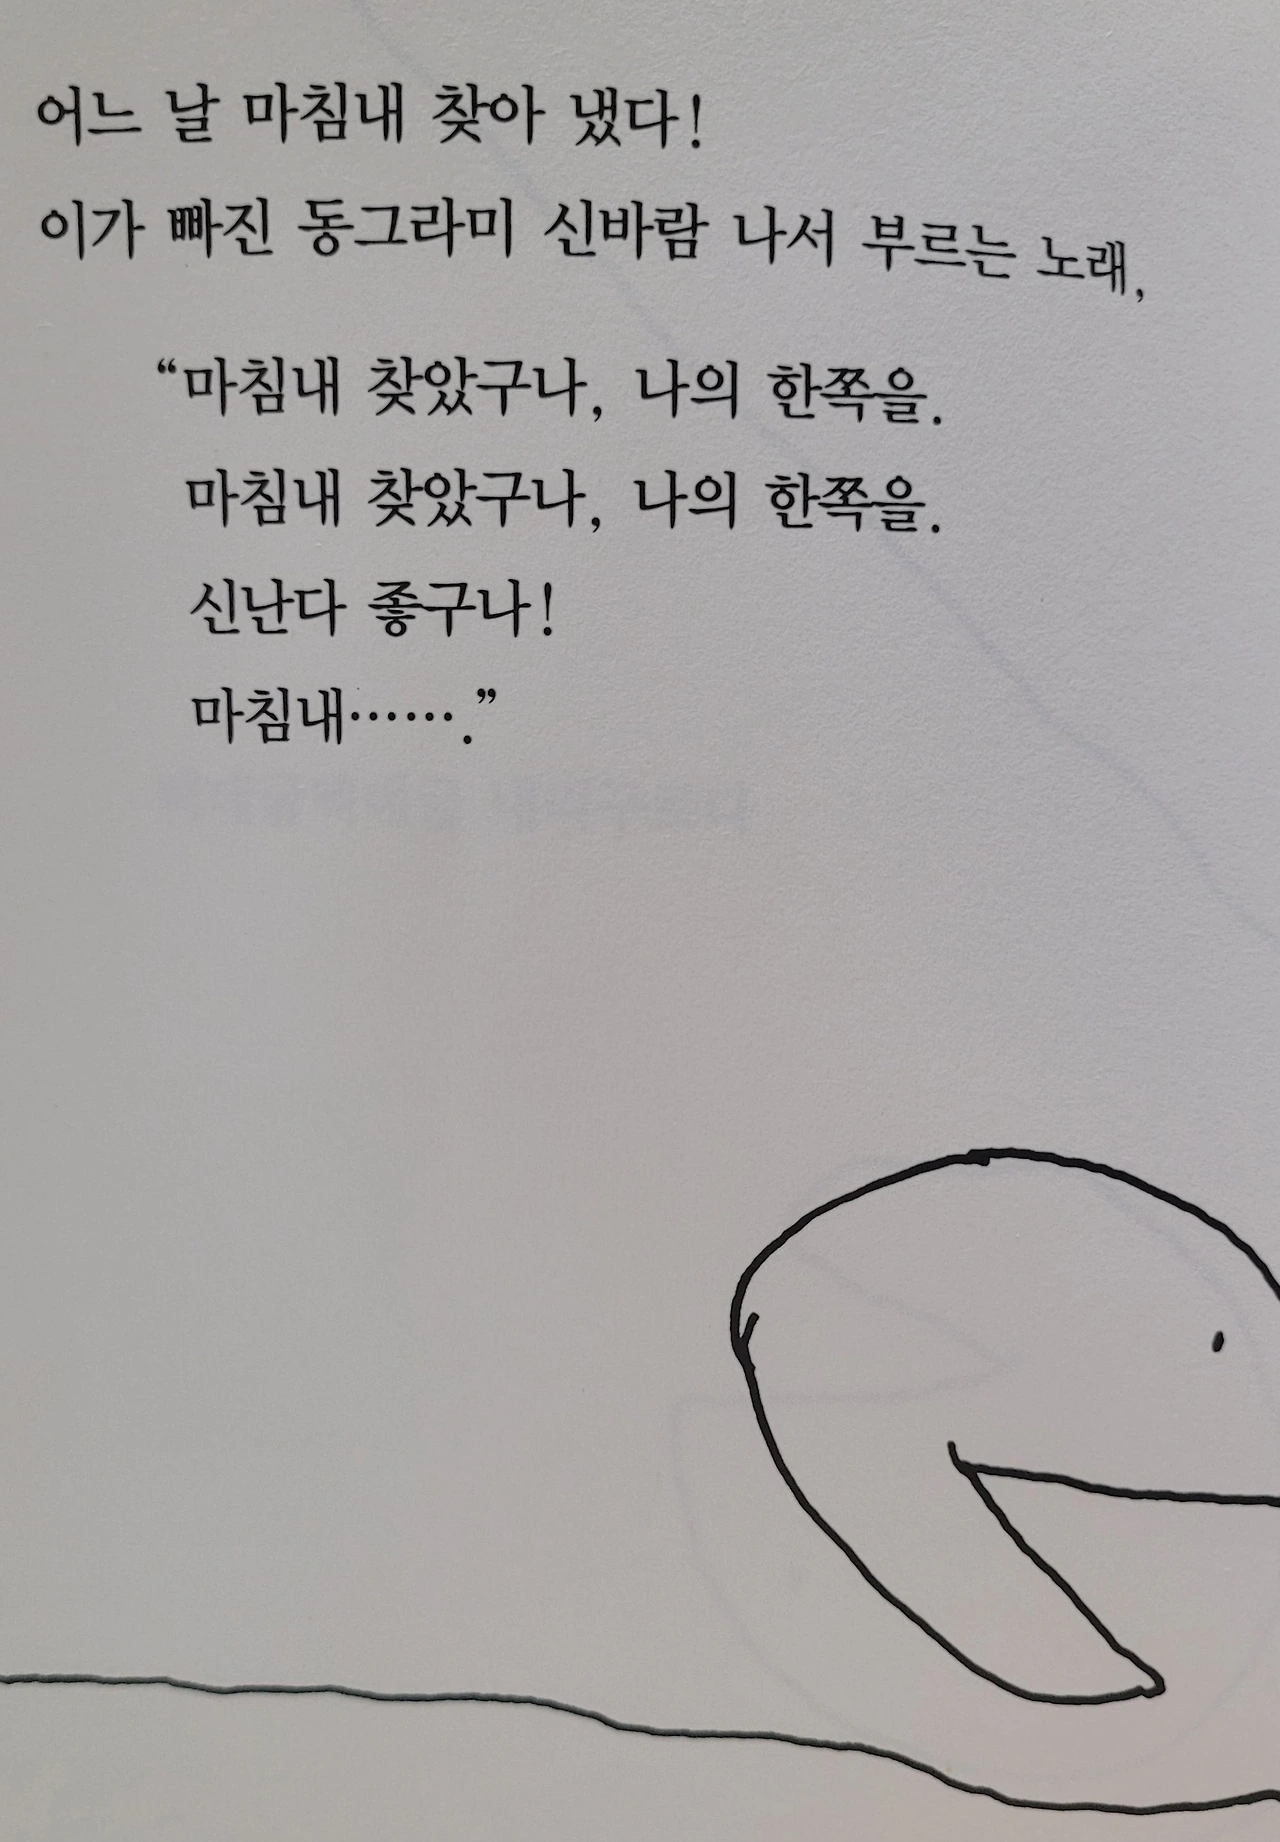 어느 날 마침내 찾아 냈다!
이가 빠진 동그라미 신바람 나서 부르는 노래,
“마침내 찾았구나, 나의 한쪽을.
마침내 찾았구나, 나의 한쪽을.
신난다 좋구나!
마침내…….”